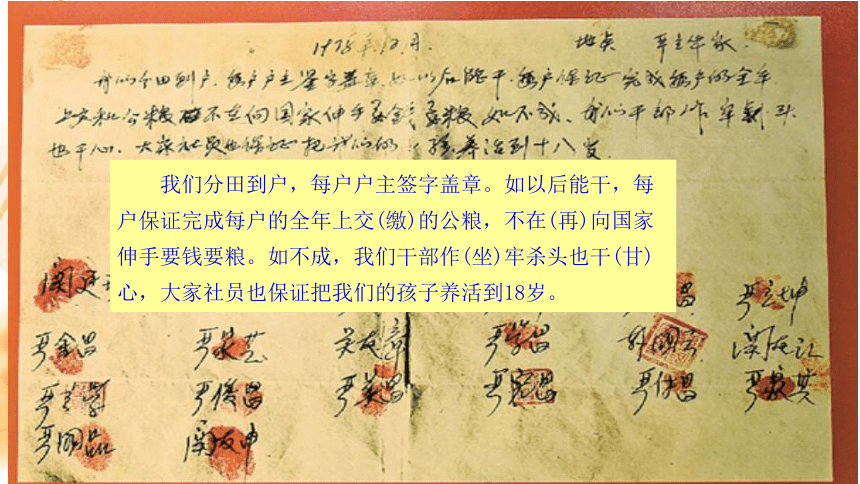 1978年12月. 地点 严立华家.
我们分田到户,每户户主签字盖章,如以后能干,每户保证完成每户的全年
上交和公粮不在向国家伸手要钱要粮如不成,我们干部作牢杀头
也干心,大家社员也保证把我们的小孩养活到十八岁.
我们分田到户，每户户主签字盖章。如以后能干，每
户保证完成每户的全年上交(缴)的公粮，不在(再)向国家
伸手要钱要粮。如不成，我们干部作(坐)牢杀头也干(甘)
心，大家社员也保证把我们的孩子养活到18岁。
关廷 昌 严立坤
严金昌 严家芝 关友章 严学昌 韩国云 关友江
严立学 严俊昌 严美昌 严宏昌 严付昌 严家其
严国品 关友申